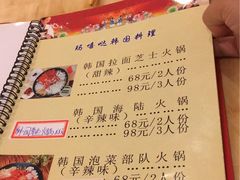 玛喜达韩国料理
韩国拉面芝士火锅
(甜辣)
68元/2人份
98元/3人份
韩国海陆火锅
(辛辣味)
68元/2人份
98元/3人份
韩国泡菜部队火锅
(辛辣味)
68元/2人份